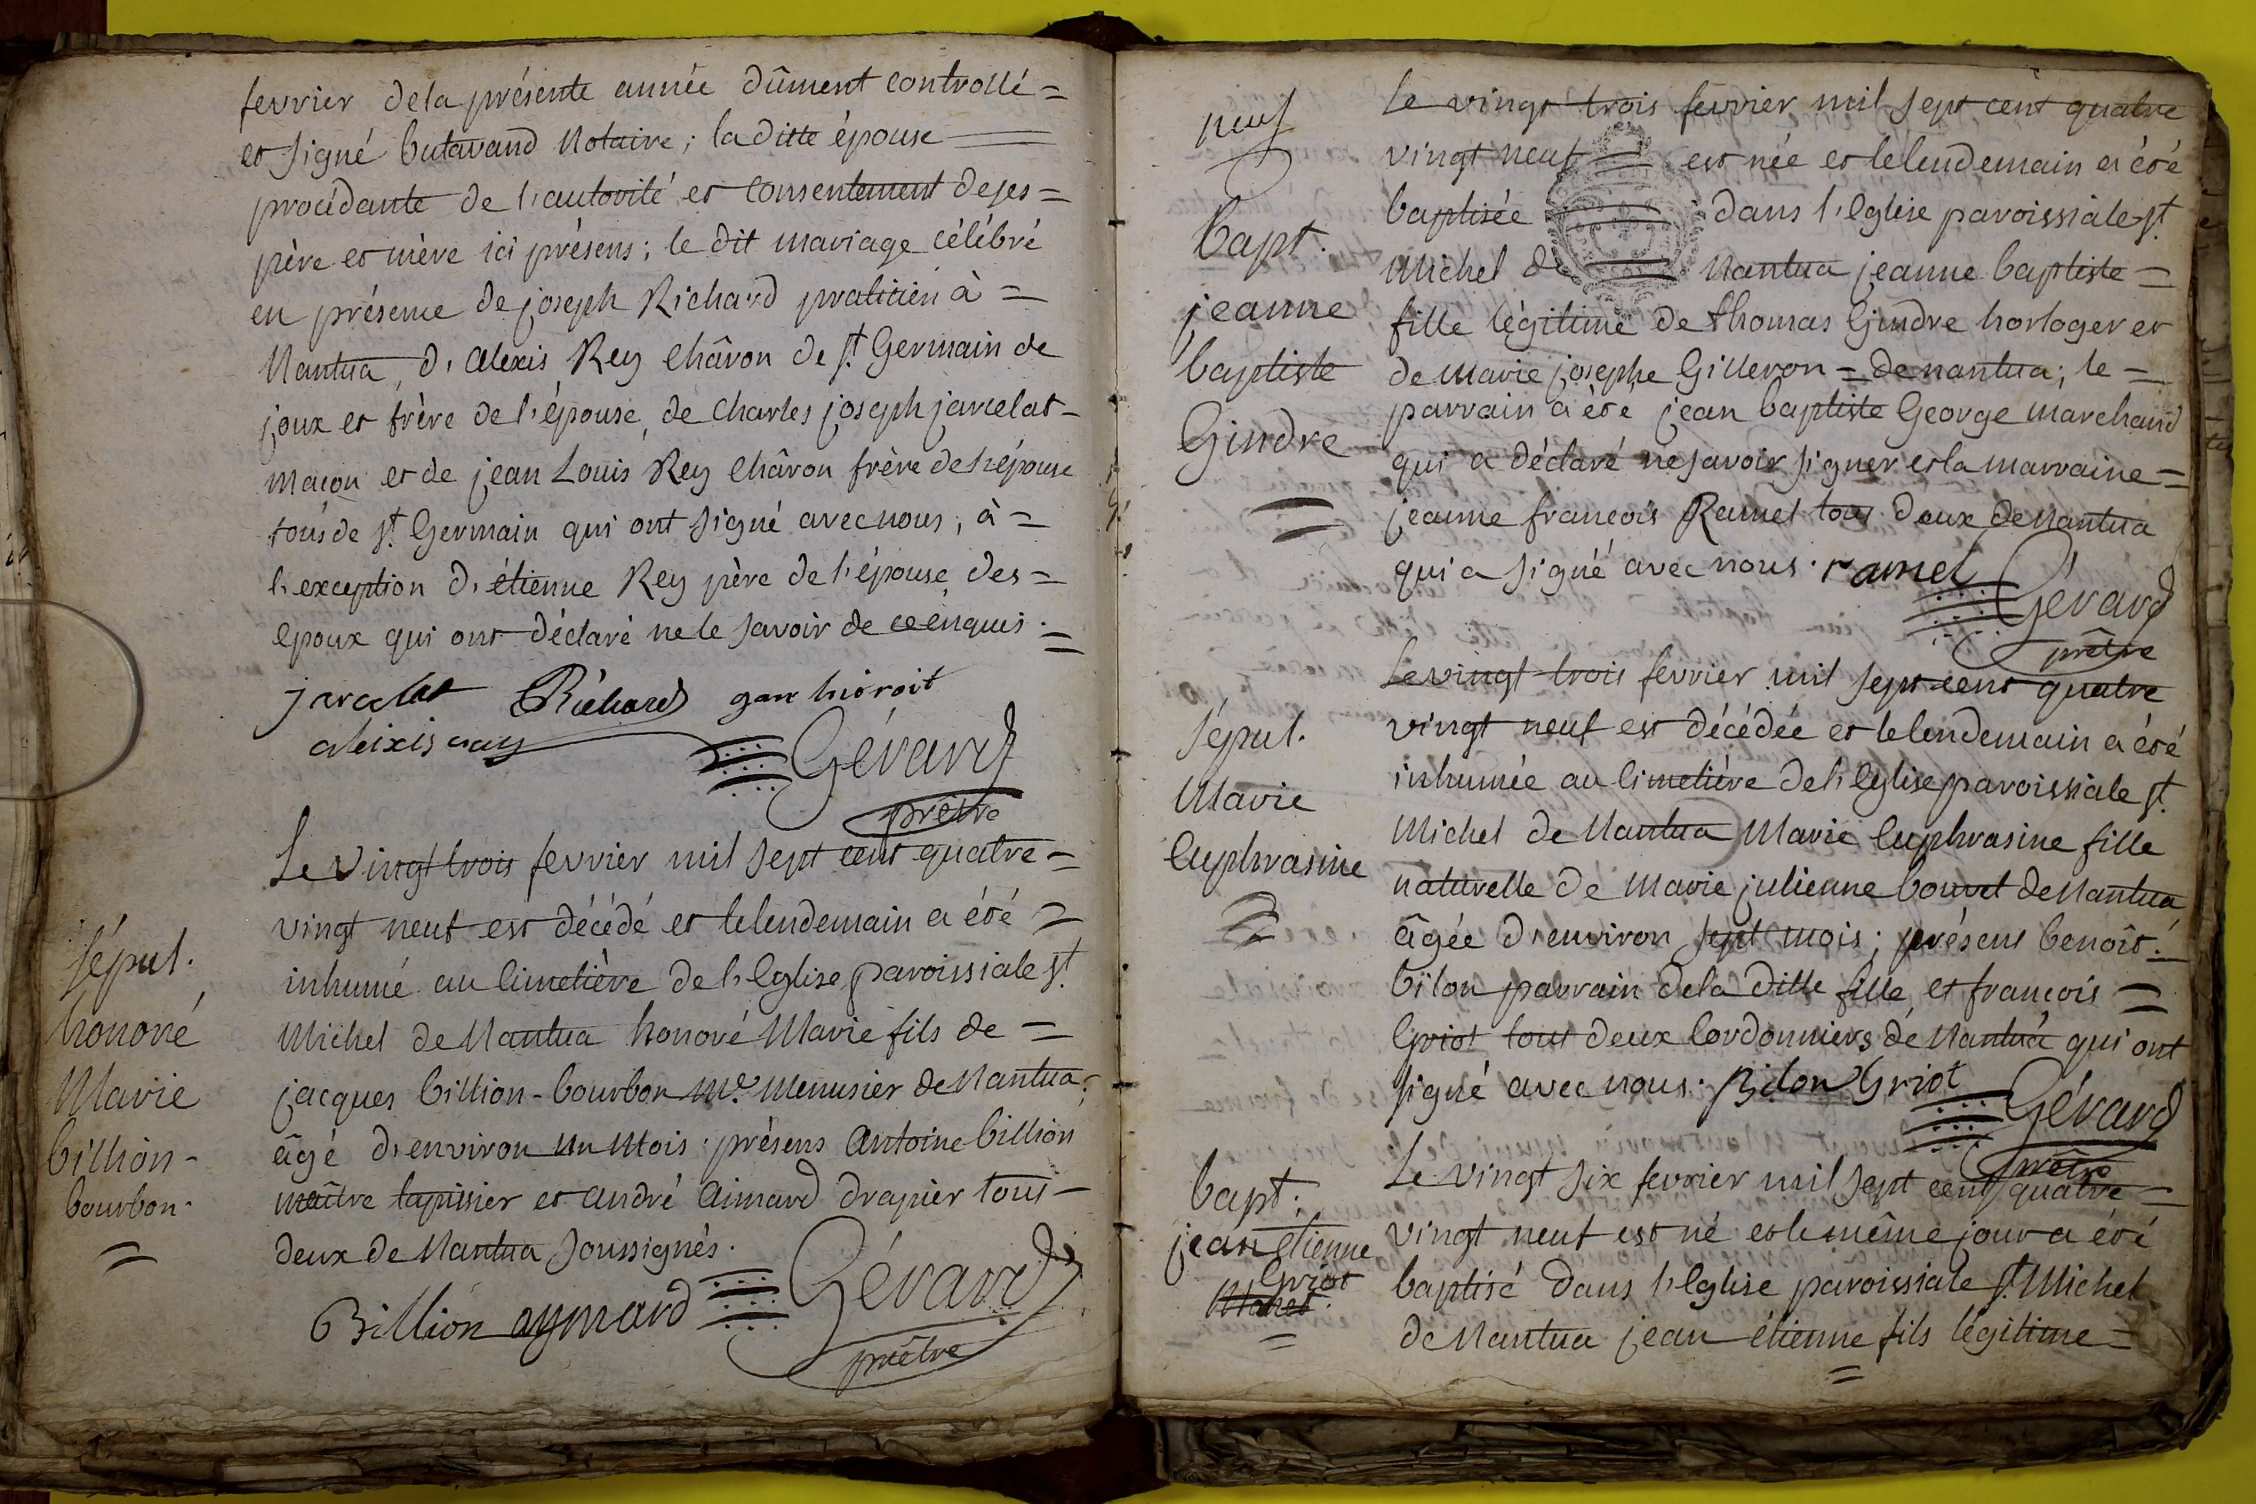 fevrier dela présente année dûment controllé =
et signé butavand Notaire ; la ditte épouse
procédante de l'autorité et consentement de ses =
père et mère ici présens ; le dit mariage célébré
en présence de joseph Richard praticien à =
Nantua, d'alexis Rey châron de st. Germain de
joux et frère de l'épouse, de Charles joseph jarcelat -
maçon et de jean Louis Rey châron frère de l'épouse
tous de st. Germain qui ont signé avec nous ; à =
l'exception d'étienne Rey père de l'épouse, des =
epoux qui ont déclaré ne le savoir de ce enquis . =
jarcelat Richard
aleixis
Gérard
prêtre
sépul.
honoré
Marie
billion -
bourbon .
Le vingt trois fevrier mil sept cent quatre =
vingt neuf est décédé et le lendemain a été =
inhumé au Cimetière de l'Eglise paroissiale st.
Michel de Nantua honoré Marie fils de =
jacques billion - bourbon me. Menusier de Nantua ;
âgé d'environ un Mois . présens antoine billion
maître tapisier et andré aimard drapier tous -
deux de Nantua soussignés .
Billion aymard Gérard
prêtre
neuf
Bapt.
jeanne
baptiste
Gindre
Le vingt trois fevrier mil sept cent quatre
vingt neuf est née et le lendemain a été
baptisée dans l'Eglise paroissiale st.
Michel de Nantua jeanne baptiste =
fille légitime de thomas Gindre horloger et
de marie josephe Gilleron = de nantua ; le =
parrain a été jean baptiste George marchand
qui a déclaré ne savoir signer et la marraine =
jeanne françois Ramel tous deux de Nantua
qui a signé avec nous . ramel Gérard
prêtre
sépul.
Marie
Euphrasine
Le vingt trois fevrier mil sept cent quatre
vingt neuf est décédée et le lendemain a été
inhumée au Cimetière de l'Eglise paroissiale st.
Michel de Nantua Marie Euphrasine fille
naturelle de marie julienne bouvet de Nantua
âgée d'environ sept mois ; présens benoît =
bilon parrain de la ditte fille, et françois =
Griot tous deux Cordonniers de Nantua qui ont
signé avec nous . Bilon Griot Gérard
prêtre
bapt.
jean etienne
Griot
Le vingt six fevrier mil sept cent quatre =
vingt neuf est né et le même jour a été
baptisé dans l'Eglise paroissiale st. Michel
de Nantua jean étienne fils légitime =